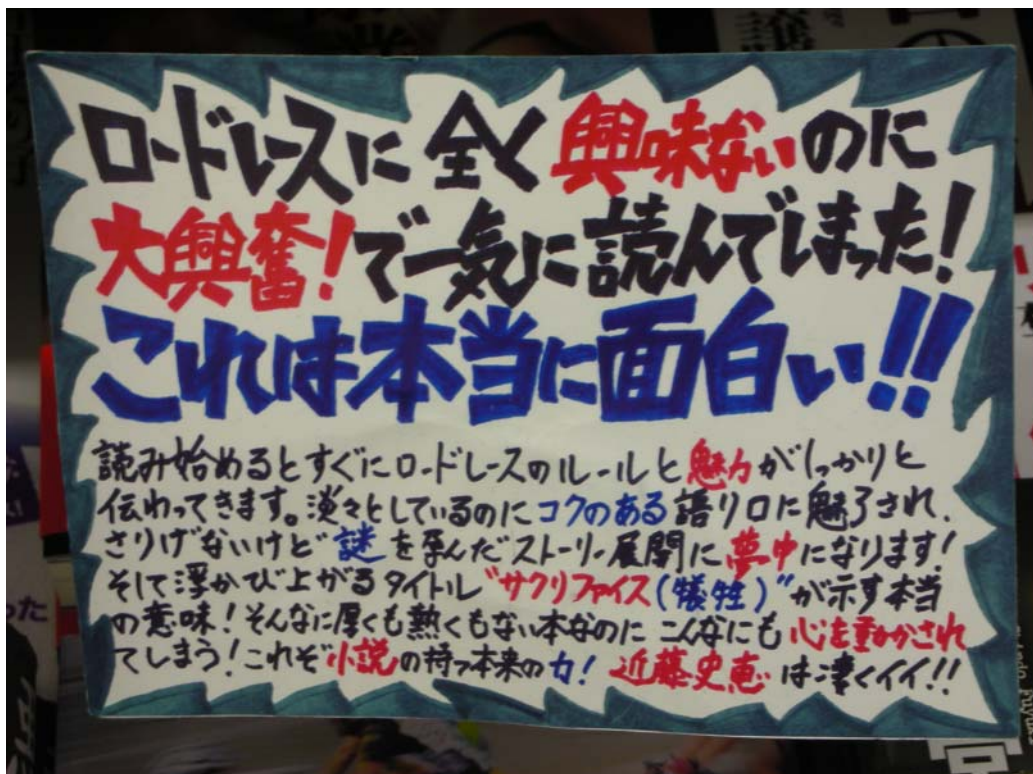 ロードレースに全く興味ないのに
大興奮！で一気に読んでしまった！
これは本当に面白い！！
読み始めるとすぐにロードレースのルールと魅力がしっかりと
伝わってきます。淡々としているのにコクのある語り口に魅了され、
さりげないけど謎を孕んだストーリー展開に夢中になります！
そして浮かび上がるタイトル"サクリファイス(犠牲)"が示す本当
の意味！そんなに厚くも熱くもない本なのにこんなにも心を動かされ
てしまう！これぞ小説の持つ本来の力！近藤史恵は凄くイイ！！